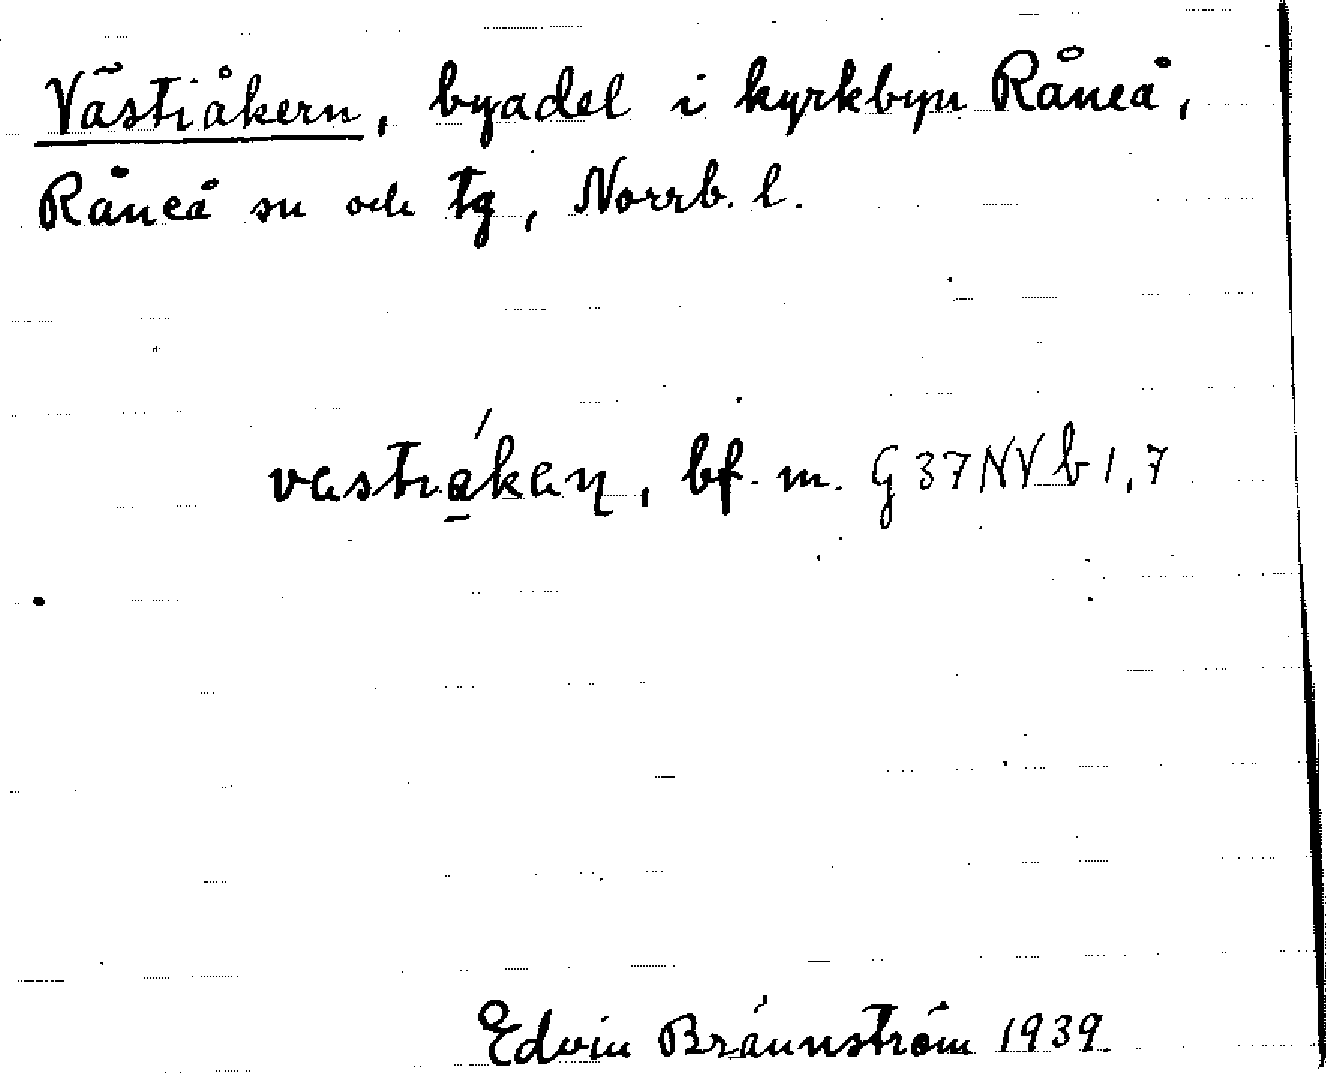 Västiåkern, byadel i kyrkbyn Råneå,
Råneå sn och tg, Norrb. l.
bf. m. G 37 NV b 1,7
Edvin Brännström 1939